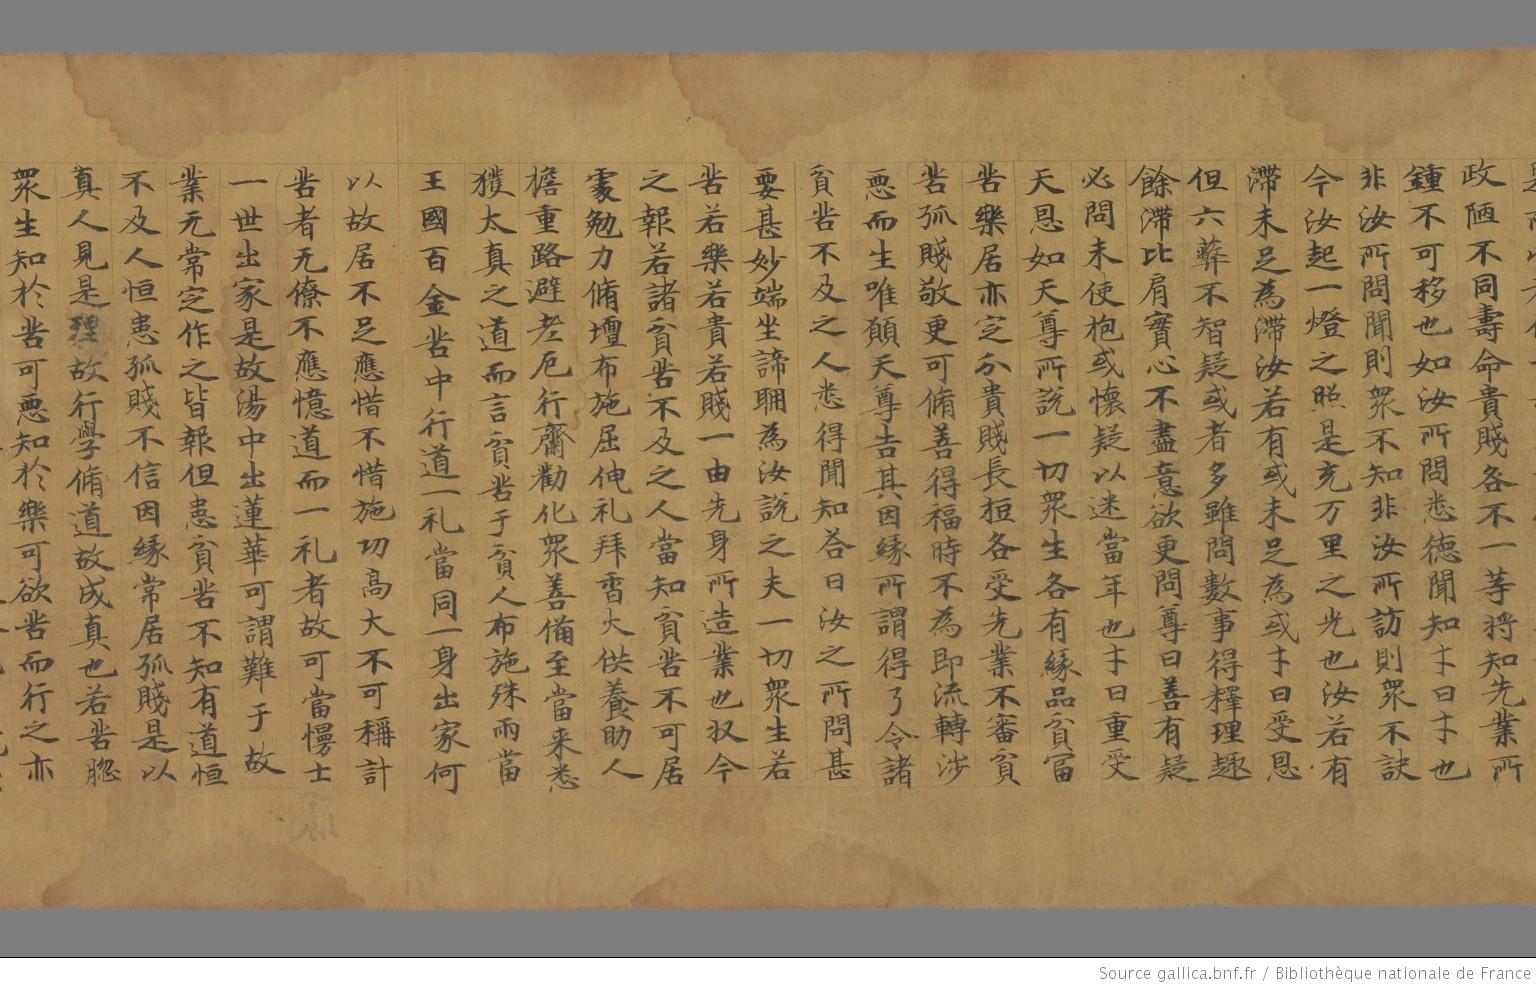 政陋不同壽命貴賤各不一等将知先業所
鍾不可移也如汝所問悉徳聞知才曰才也
非汝所問聞則衆不知非汝所訪則衆不訣
今汝起一燈之照是充万里之光也汝若有
滯未足為滯汝若有或未足為或才曰受恩
但六葬不智疑或者多雖問數事得釋理趣
餘滯比肩實心不盡意欲更問尊曰善有疑
必問未使抱或懷疑以迷當年也才曰重受
天恩如天尊所説一切衆生各有緣品貧富
苦樂居亦定分貴賤長桓各受先業不審貧
苦孤賤敬更可脩善得福時不為即流轉涉
悪而生唯願天尊告其因緣所謂得了令諸
貧苦不及之人悉得聞知荅曰汝之所問甚
要甚妙端坐諦聽為汝説之夫一切衆生若
苦若樂若貴若賤一由先身所造業也収今
之報若諸貧苦不及之人當知貧苦不可居
䖏勉力脩壇布施屈伸礼拜香火供養助人
檐重路避老厄行齋勸化衆善備至當来悉
獲太真之道而言貧苦于貧人布施殊而當
王國百金苦中行道一礼當同一身出家何
以故居不足應惜不惜施功高大不可稱計
苦者无僚不應憶道而一礼者故可當愕士
一世出家是故湯中出蓮華可謂難于故
業无常定作之皆報但恚貧苦不知有道恒
不及人恒恚孤賤不信因緣常居孤賤是以
真人見是理故行學脩道故成真也若苦𦚾
衆生知於苦可悪知於樂可欲苦而行之亦
Source gallica.bnf.fr / Bibliothèque nationale de France